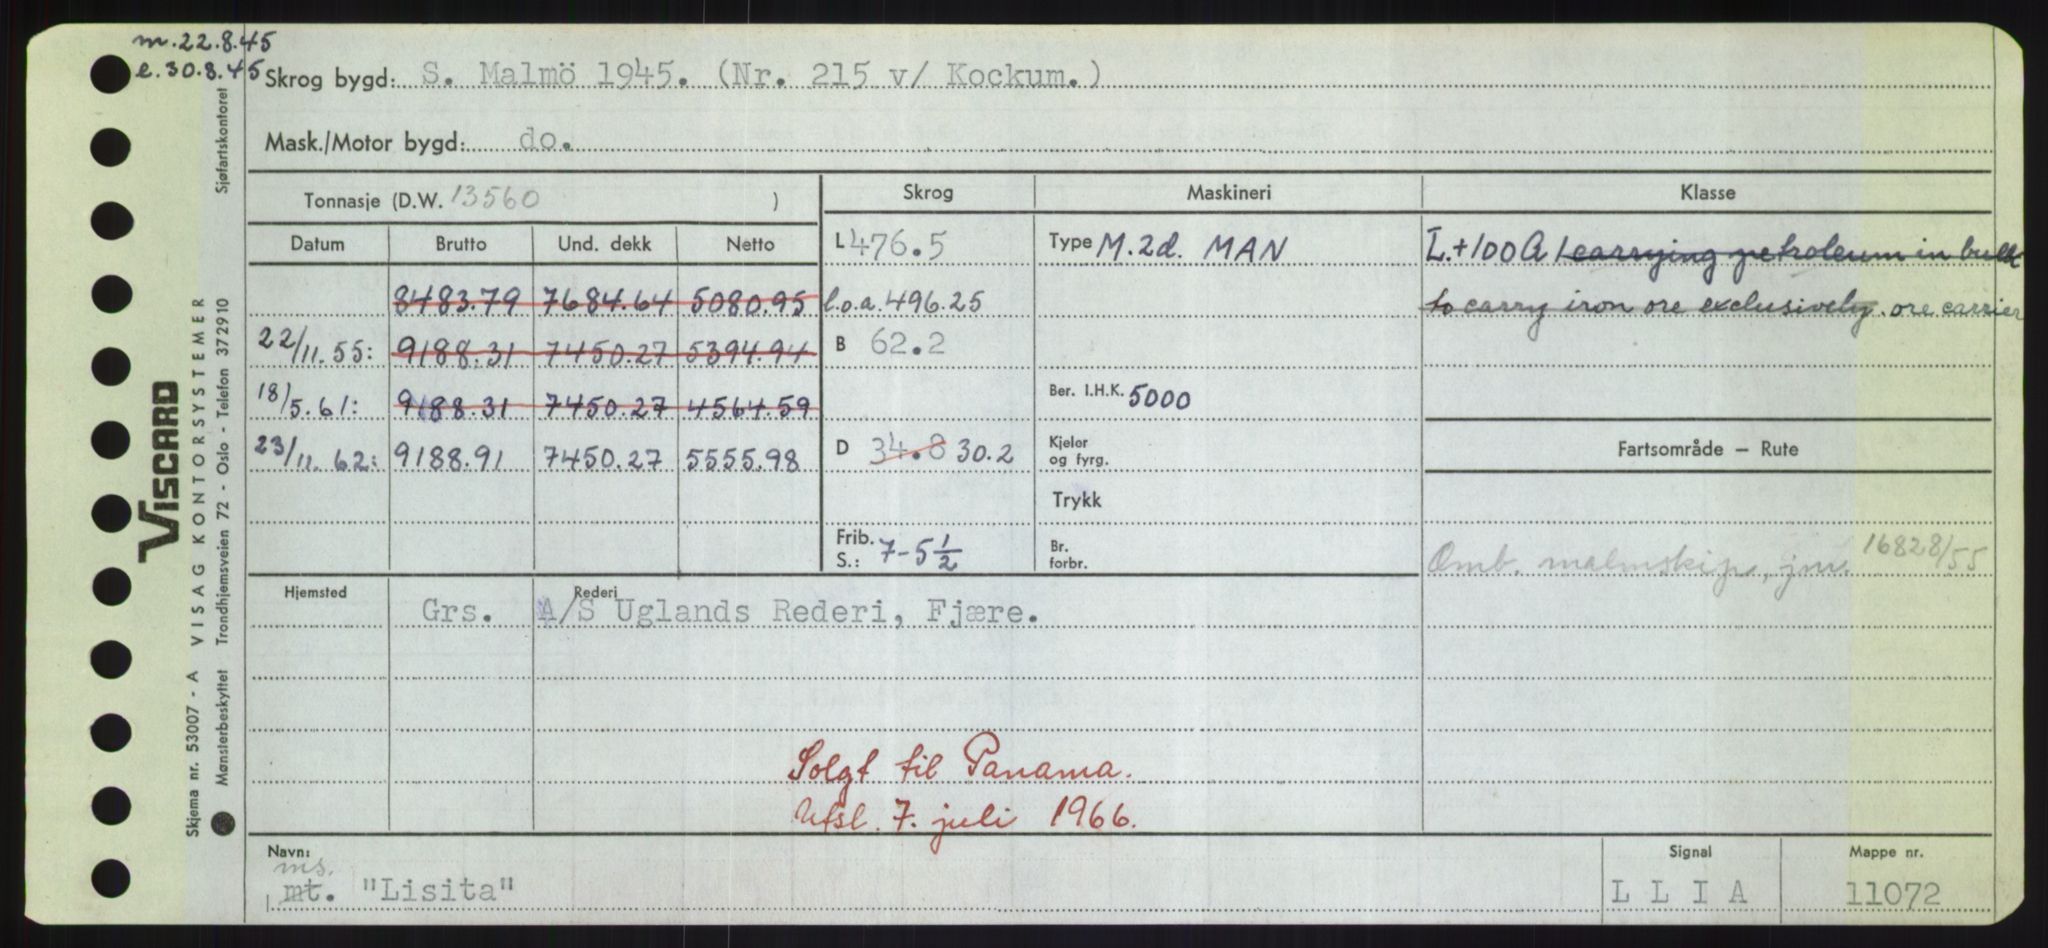 m.22.8.45
e.30.8.45
Skrog bygd: S. Malmö 1945. (Nr. 215 v/ Kockum.)
Mask./Motor bygd: do.
Tonnasje (D.W. 13560 )
Skrog
Maskineri
Klasse
Datum Brutto Und. dekk Netto
L 476.5
Type M.2d. MAN
L.+100A1 carrying petroleum in bulk
8483.79 7684.64 5080.95
l.o.a. 496.25
to carry iron ore exclusively. ore carrier
22/11.55: 9188.31 7450.27 5394.94
B 62.2
18/5.61: 9188.31 7450.27 4564.59
Ber. I.H.K. 5000
23/11.62: 9188.91 7450.27 5555.98
D 34.8 30.2
Kjeler
og fyrg.
Fartsområde – Rute
Trykk
Frib.
S.: 7-5 1/2
Br.
forbr.
Omb. malmskip, jnr. 16828/55
Hjemsted
Rederi
Grs. A/S Uglands Rederi, Fjære.
Solgt til Panama.
Utsl. 7. juli 1966.
Navn:
ms.
mt. "Lisita"
Signal
L L I A
Mappe nr.
11072
Skjema nr. 53007 - A VISAG KONTORSYSTEMER
VISCARD
Mønsterbeskyttet Trondhjemsveien 72 - Oslo - Telefon 372910 Sjøfartskontoret